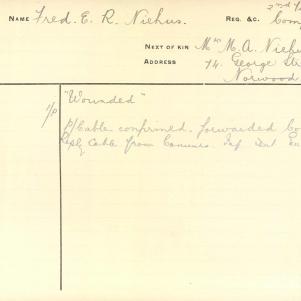 NAME Fred. E. R. Niehus. REG. &C. 2nd
NEXT OF KIN Mrs M. A. Niehu
ADDRESS 74. George Str
Norwood
"Wounded"
Cable confirmed. forwarded
Reply Cable from